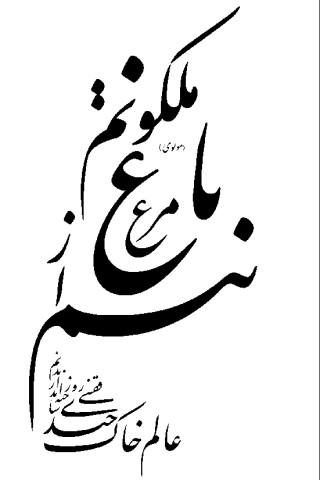 مرغ
باغ
ملکوتم
(مولوی)
نیم
از
عالم خاک
چند
روزی
قفسی
ساخته‌اند
از بدنم